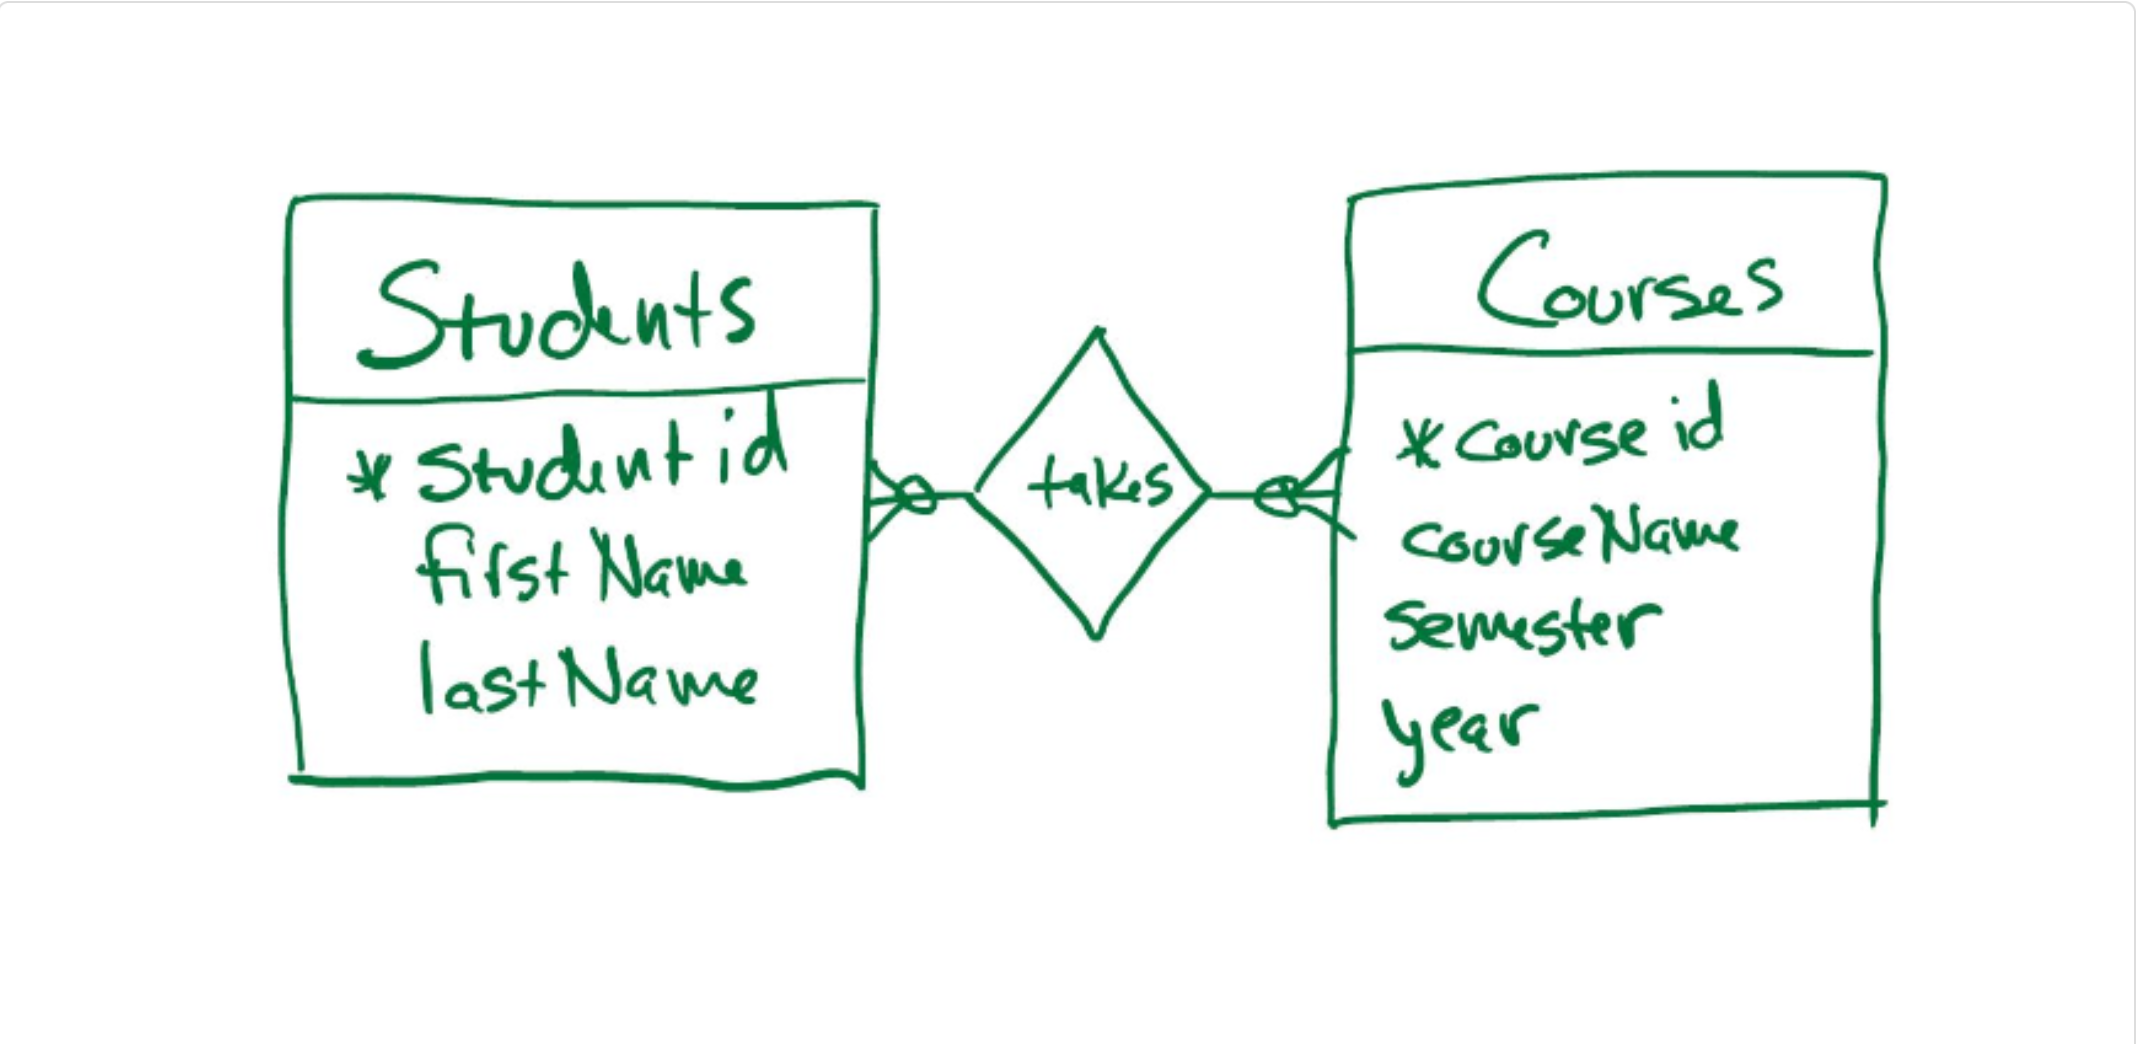 Students
* Student id
first Name
last Name
takes
Courses
* Course id
Course Name
Semester
year